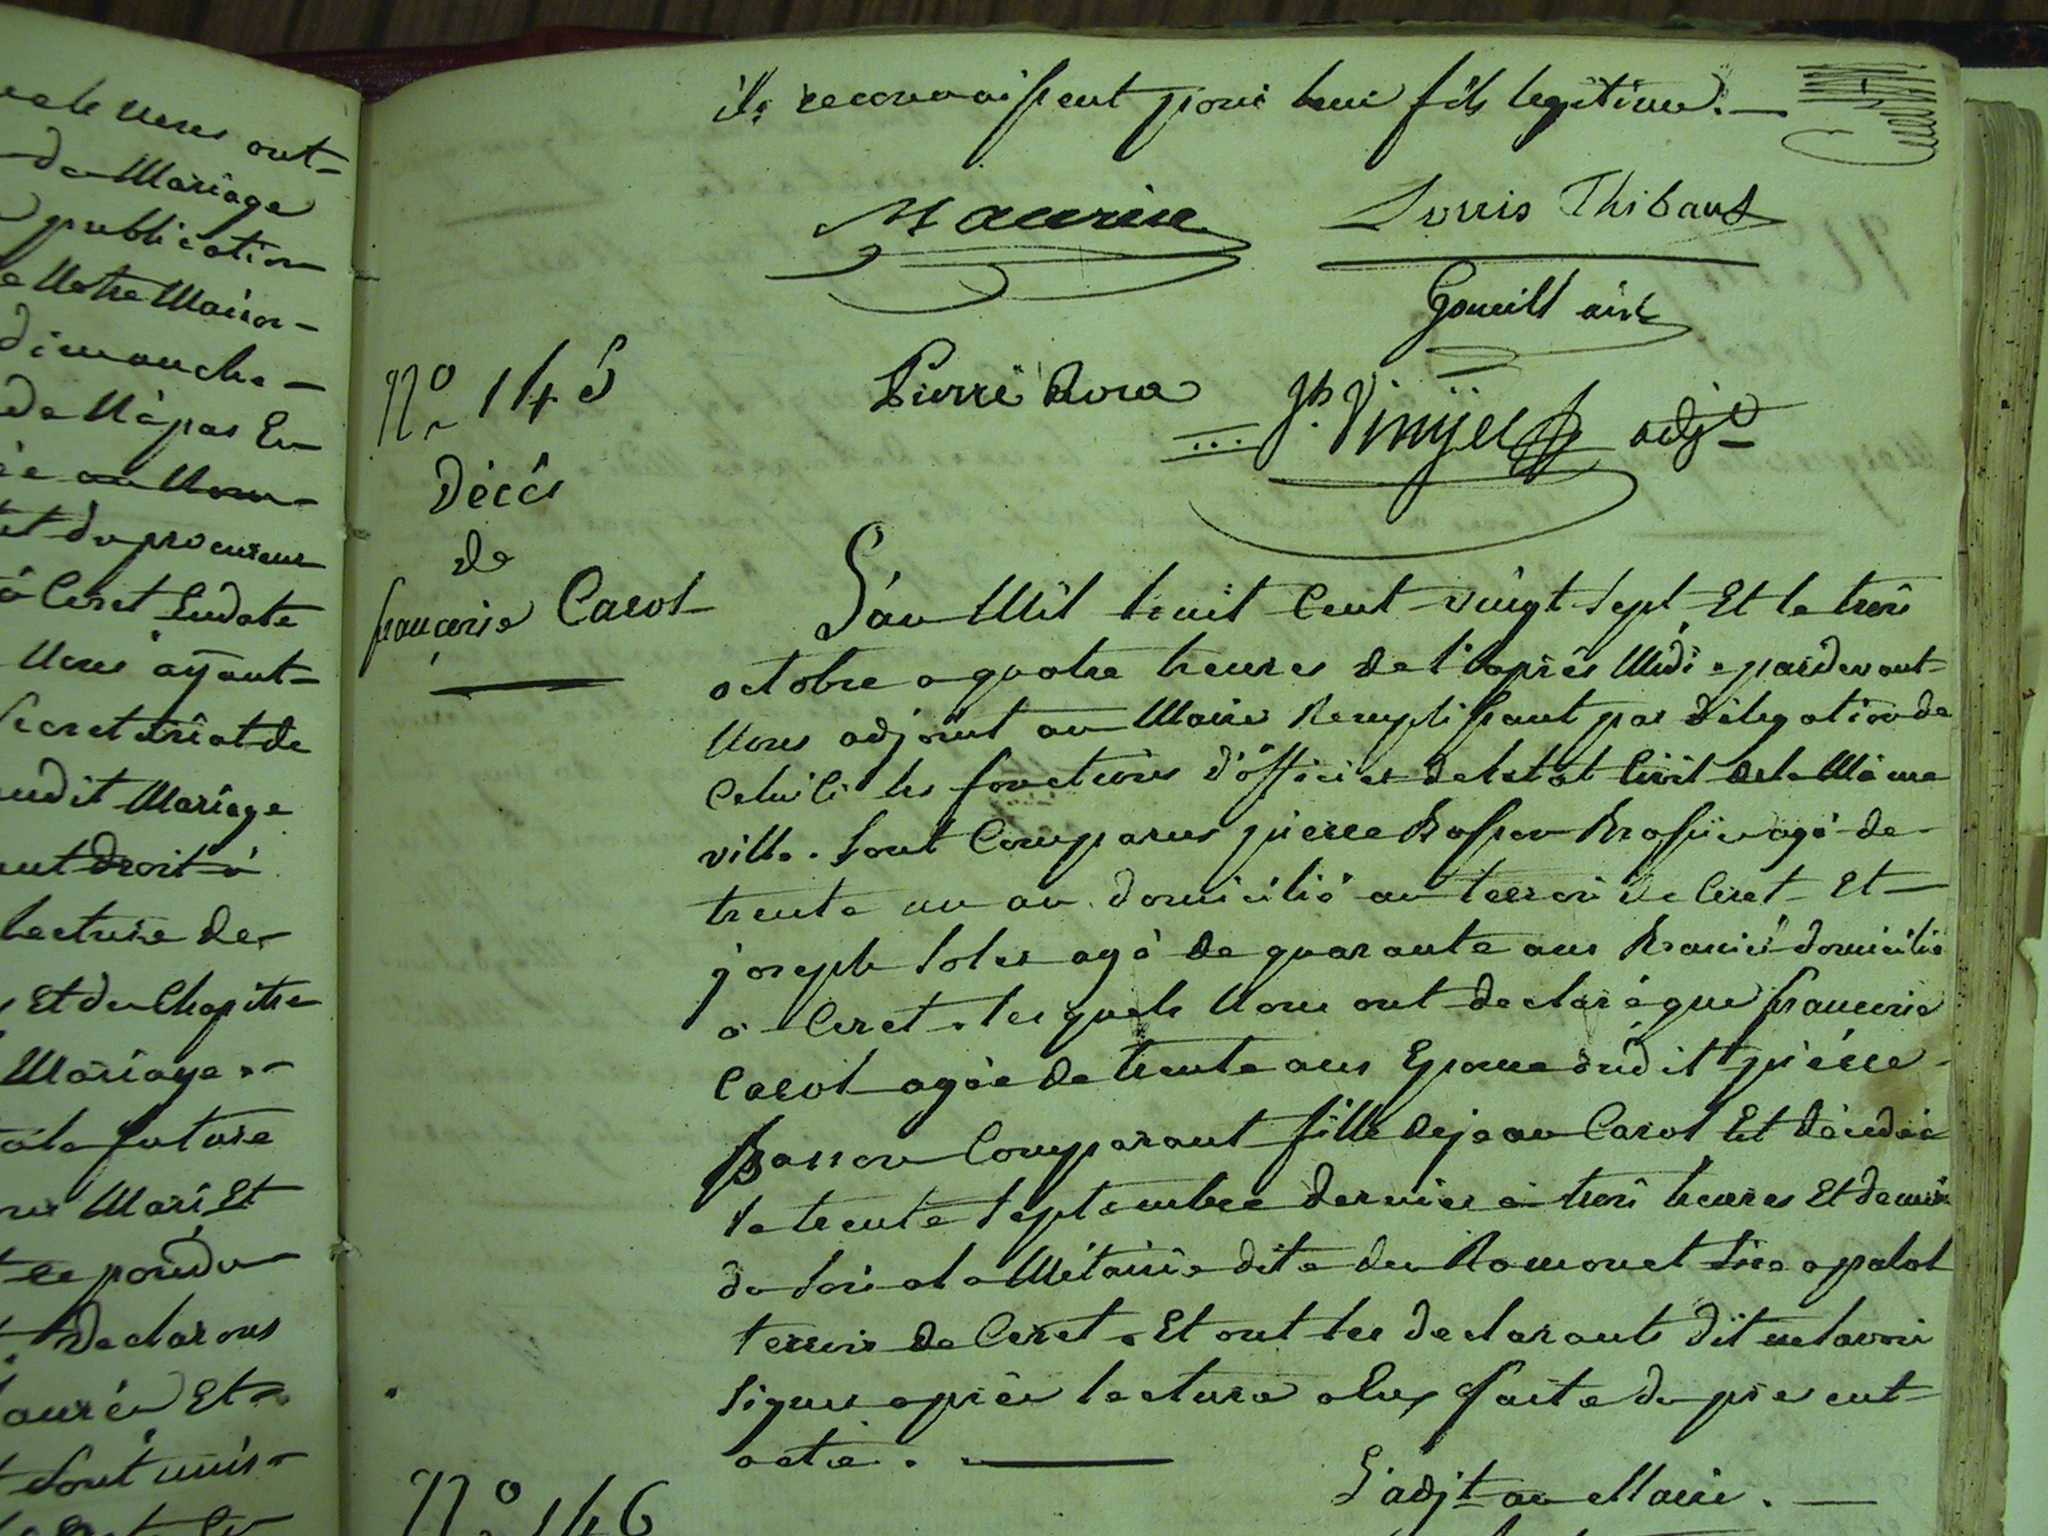 vele nous ont
de Mariage
publication
Notre Maison
dimanche
de N'a pas Eu
ée au Nom
et du procureur
à Ceret Sudate
Nous ayant
Secretariat de
udit Mariage
ant droit à
lecture de
Et du Chapitre
Mariage
à la future
Mari Et
repondu
declarons
Et
sont unis
ils reconnaissent pour leur fils legitime.
Maurice
Louis Thibaut
Gouill ainé
Pierre Rora
Jh Vinyes adjt
No 145
Décés
de
françoise Carol
L'an Mil huit Cent vingt Sept Et le trois
octobre a quatre heures de l'après Midi pardevant
Nous adjoint au Maire Remplissant par délégation de
Celui Ci les fonctions d'officier de letat Civil de la Même
ville. Sont Comparus pierre Basson Brassier agé de
trente un an domicilié au terroir de Ceret Et
joseph Soler agé de quarante ans domicilié
a Ceret. lesquels Nous ont declaré que françoise
Carol agée de trente ans Epouse dudit pierre
Basson Comparant fille de jean Carol Est décédée
le trente Septembre dernier a trois heures Et demie
du Soir a la Métairie dite den Ramonet Sise a palol
terroir de Ceret. Et ont les declarants dit ne Savoir
Signer après lecture a Eux faite du present
acte.
L'adjt au Maire.
No 146